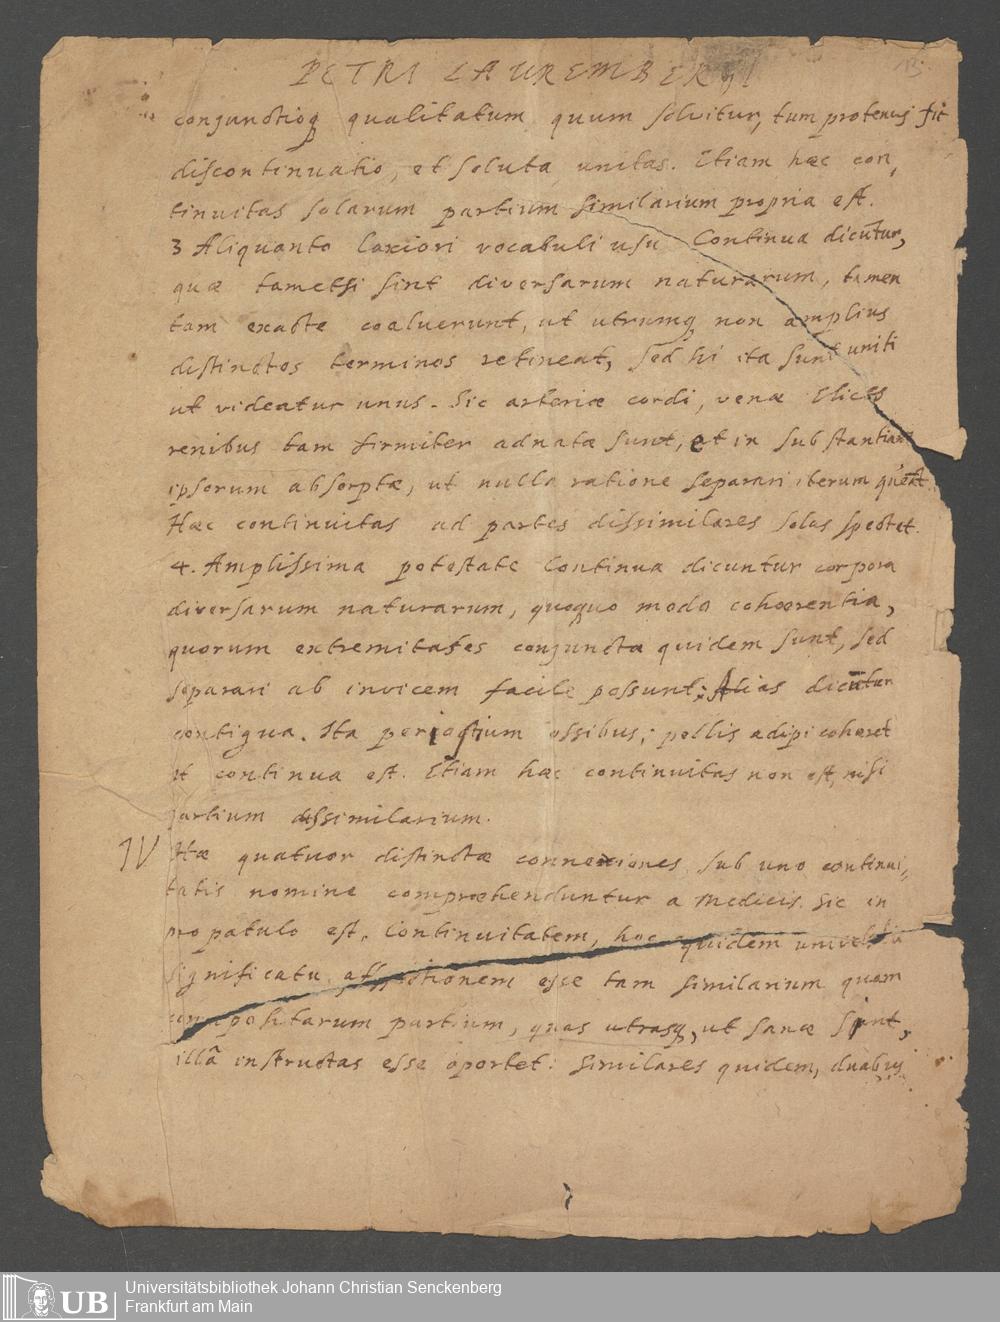 PETRI LAUREMBERGI
13
conjunctioq́ qualitatum quum solvitur, tum protenus fit
discontinuatio, et soluta unitas. Etiam hæc con,
tinuitas solarum partium similarium propria est.
3 Aliquanto laxiori vocabuli usu Continua dicūtur,
quæ tametsi sint diversarum naturarum, tamen
tam exacte coaluerunt, ut utrumq́ non amplius
distinctos terminos retineat, sed hi ita sunt uniti
ut videatur unus. Sic arteriæ cordi, venæ
renibus tam firmiter adnatæ sunt, et in substantiam
ipsorum absorptæ, ut nulla ratione separari iterum queāt.
Hæc continuitas ad partes dissimilares solas spectet.
4. Amplissima potestate Continua dicuntur corpora
diversarum naturarum, quoquo modo cohærentia,
quorum extremitates conjuncta quidem sunt, sed
separari ab invicem facile possunt; Alias dicūtur
contigua. Ita periostium ossibus; pellis adipi cohæret
et continua est. Etiam hæc continuitas non est, nisi
partium dissimilarium.
IV Hæ quatuor distinctæ connexiones sub uno continui,
tatis nomine compræhenduntur a Medicis. Sic in
propatulo est, Continuitatem, hoc quidem
significatu affectionem esse tam similarium quam
compositarum partium, quas utrasq́, ut sanæ sint,
illā instructas esse oportet: Similares quidem, duabus
UB
Universitätsbibliothek Johann Christian Senckenberg
Frankfurt am Main